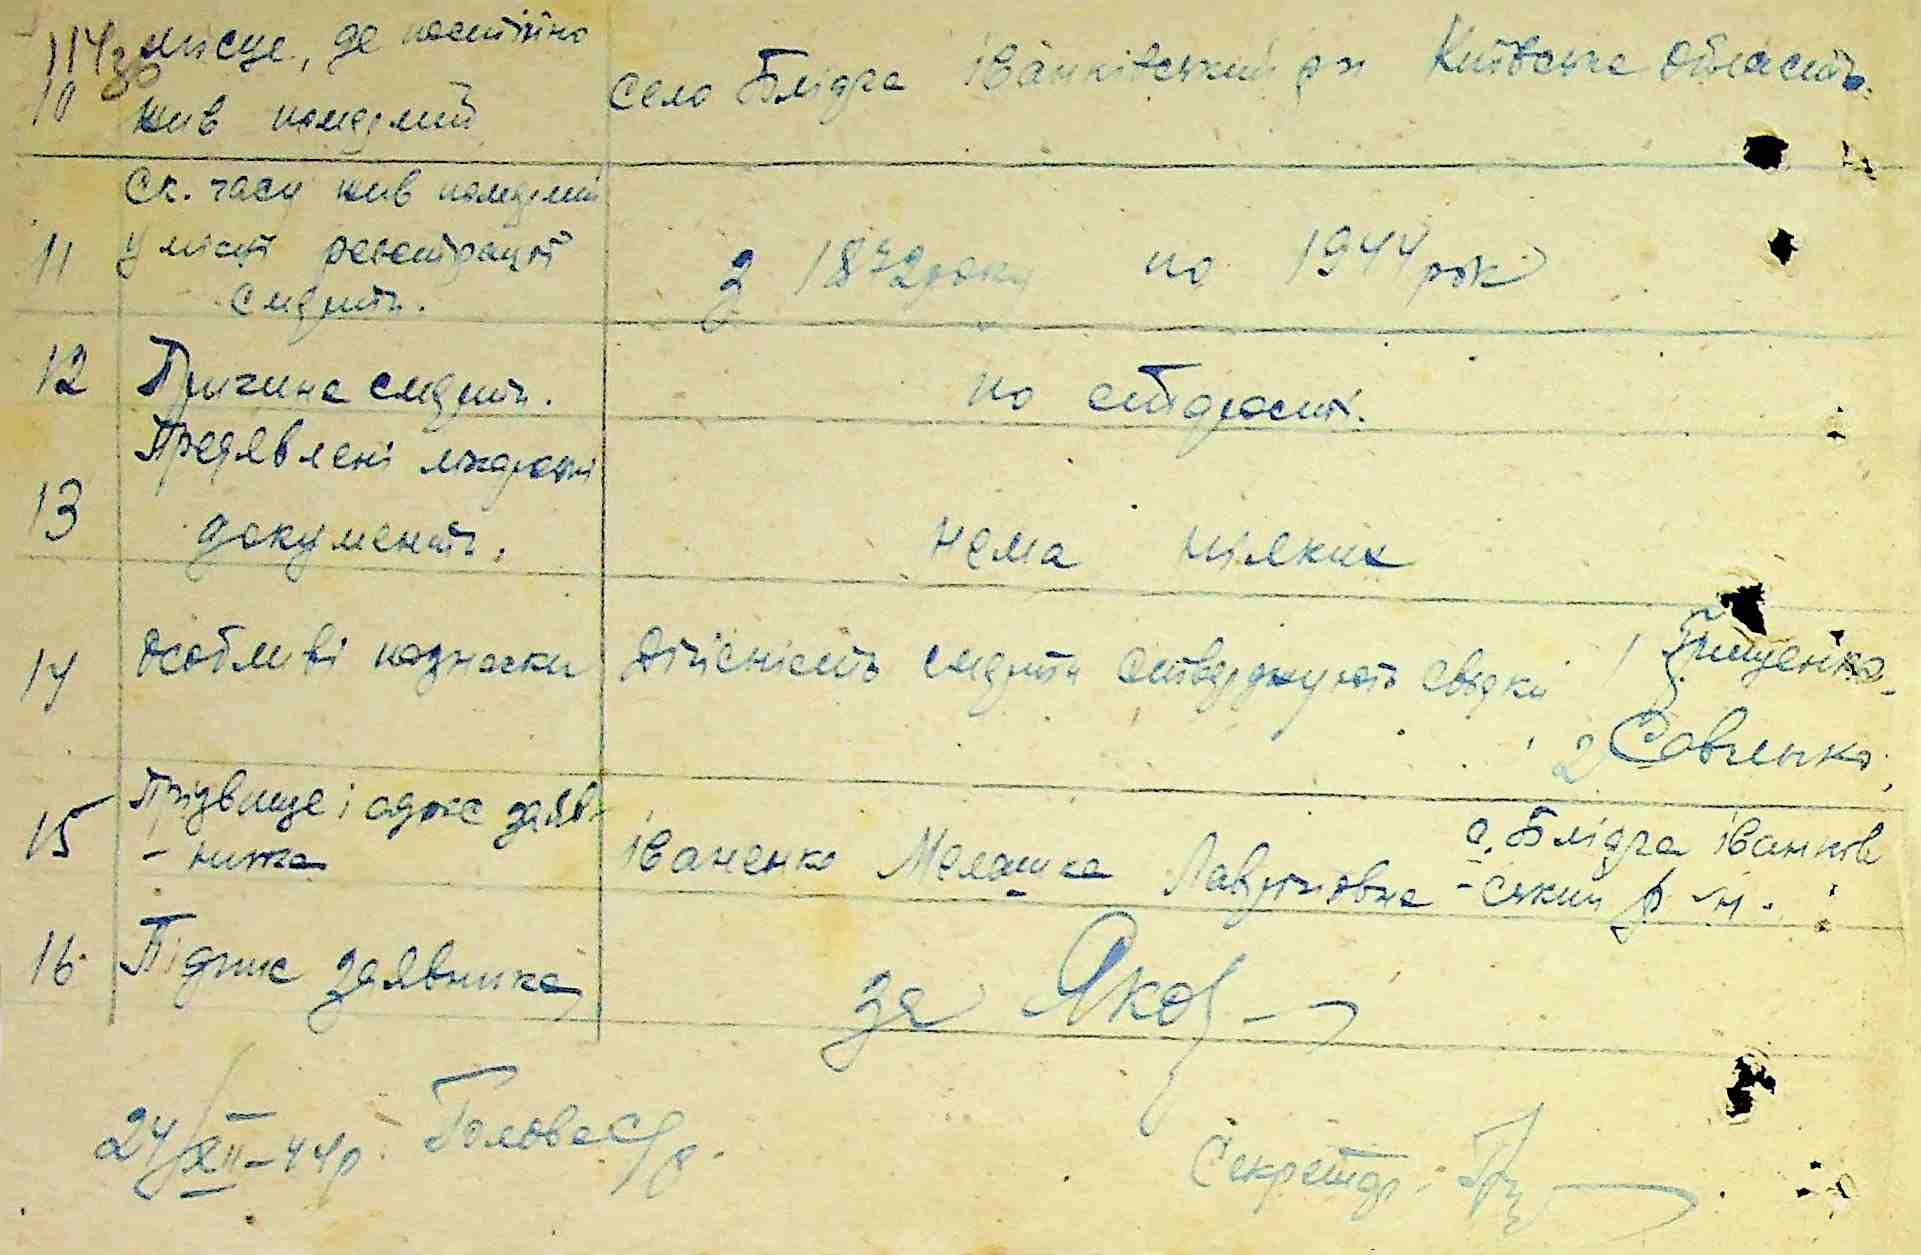 місце, де постійно
10 жив померлий
село Блідча Іванківський р-н Київська область.
Ск. часу жив померлий
11 у місці реєстрації
смерти.
з 1872 року по 1944 рік
12 Причина смерти.
по старості.
Предявлені лікарські
13 документи.
нема ніяких
14 Особливі позначки
Дійсність смерти стверджують свідки 1 Грищенко
2 Савченко
15 Прізвище і адрес заяв-
-ника
Іваненко Мелашка Лавріновна
с. Блідча Іванков
-ський р-н.
16. Підпис заявника
за Яков
24/XII-44р. Голова с/р.
Секретар.